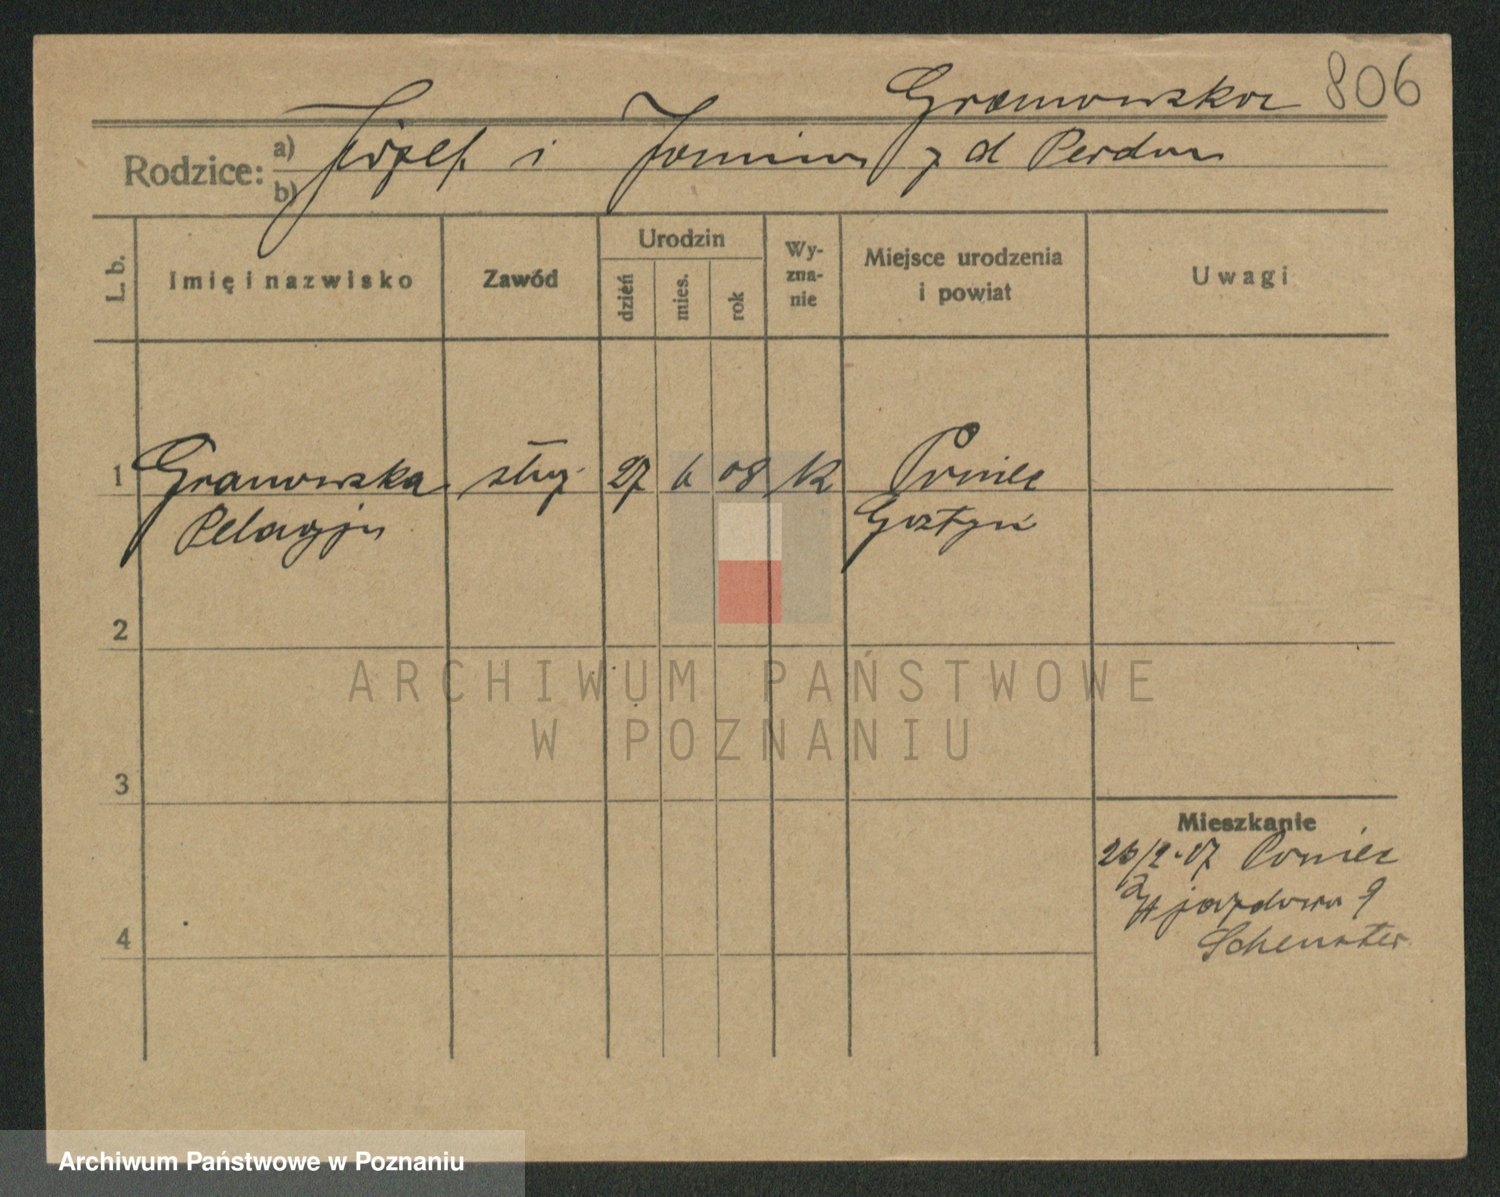 Granowska 806
Rodzice: a) Józef i Janina z d Perdun
b)
L. b.
Imię i nazwisko
Zawód
Urodzin
dzień
mies.
rok
Wy-
zna-
nie
Miejsce urodzenia
i powiat
Uwagi
1 Granowska służ. 27 6 08 k Poniec
Pelagja Gostyń
2
3
4
Mieszkanie
26/2-37 Poniec
Wjazdowa 9
Schenster
ARCHIWUM PAŃSTWOWE
W POZNANIU
Archiwum Państwowe w Poznaniu